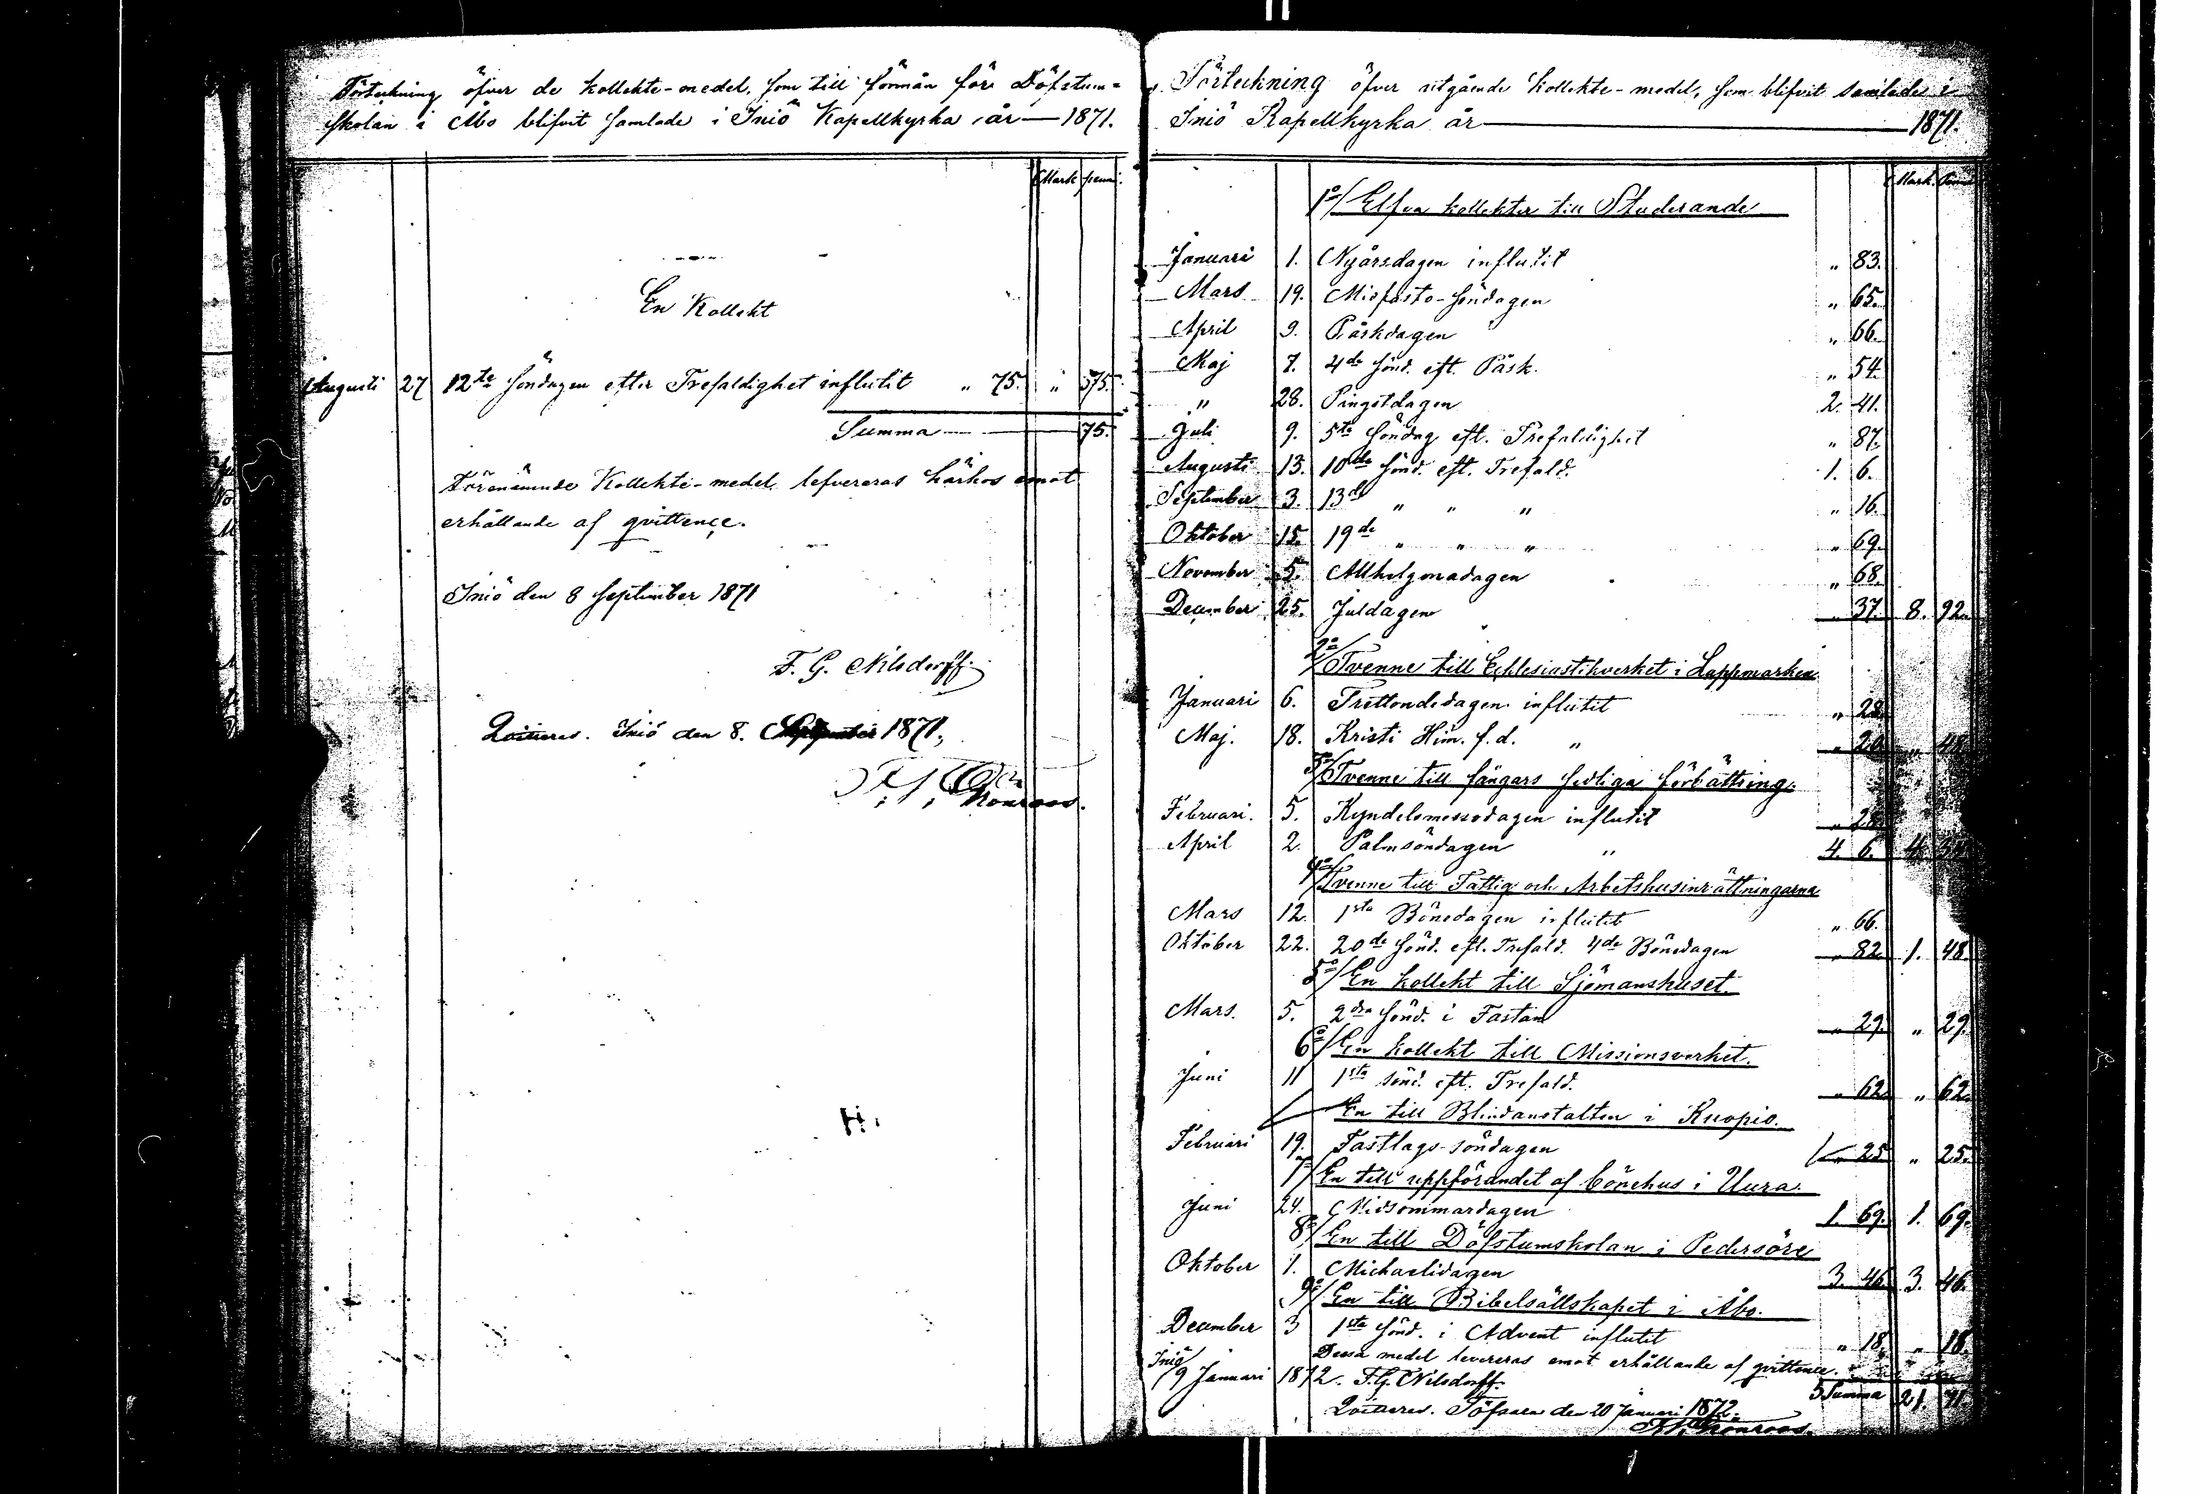 Förteckning öfver de kollekte-medel, som till förmån för Döfstum-
skolan i Åbo blifvit samlade i Iniö Kapellkyrka år — 1871.
Mark penni.
En Kollekt
Augusti 27 12te söndagen efter Trefaldighet influtit " 75. " 75.
Summa 75.
Förenämnde Kollekte-medel lefvereras härhos emot
erhållande af qvittence.
Iniö den 8 September 1871
F. G. Nilsdorff
Qvitteras. Iniö den 8. September 1871,
Förteckning öfver utgående kollekte-medel, som blifvit samlade i
Iniö Kapellkyrka år — 1871.
Mark. Penni
1o/ Elfva kollekter till Studerande
Januari 1. Nyårsdagen influtit " 83.
Mars 19. Midfasto-söndagen " 65.
April 9. Påskdagen " 66.
Maj 7. 4de sönd. eft. Påsk. " 54.
" 28. Pingstdagen 2. 41.
Juli 9. 5te söndag eft. Trefaldighet " 87.
Augusti 13. 10de sönd. eft. Trefald. 1. 6.
September 3. 13de " " " " 16.
Oktober 15. 19de " " " " 69.
November 5. Allhelgonadagen " 68.
December 25. Juldagen " 37. 8. 92.
2o/ Tvenne till Ecklesiastikverket i Lappmarken
Januari 6. Trettondedagen influtit " 28.
Maj. 18. Kristi Him. f. d. " " 20. " 48.
3o/ Tvenne till fångars sedliga förbättring.
Februari. 5. Kyndelsmessodagen influtit " 28.
April 2. Palmsöndagen " 4. 6. 4. 34.
4o/ Tvenne till Fattig och Arbetshusinrättningarna
Mars 12. 1sta Bönedagen influtit " 66.
Oktober 22. 20de sönd. eft. Trefald. 4de Bönedagen " 82. 1. 48.
5o/ En kollekt till Sjömanshuset.
Mars. 5. 2dra sönd. i Fastan " 29. " 29.
6o/ En kollekt till Missionsverket.
Juni 11 1sta sönd. eft. Trefald. " 62. " 62.
En till Blindanstalten i Kuopio.
Februari 19. Fastlags-söndagen " 25 " 25.
7o/ En till uppförandet af bönehus i Uura.
Juni 24. Midsommardagen 1. 69. 1. 69.
8o/ En till Döfstumskolan i Pedersöre
Oktober 1. Michaelidagen 3. 46. 3. 46.
9o/ En till Bibelsällskapet i Åbo.
December 3 1sta sönd. i Advent influtit " 18. " 18.
Dessa medel levereras emot erhållande af qvittence.
Iniö
19 Januari 1872. F. G. Nilsdorff.
Summa 21. 71.
Qvitteras. Töfsala den 20 Januari 1872.